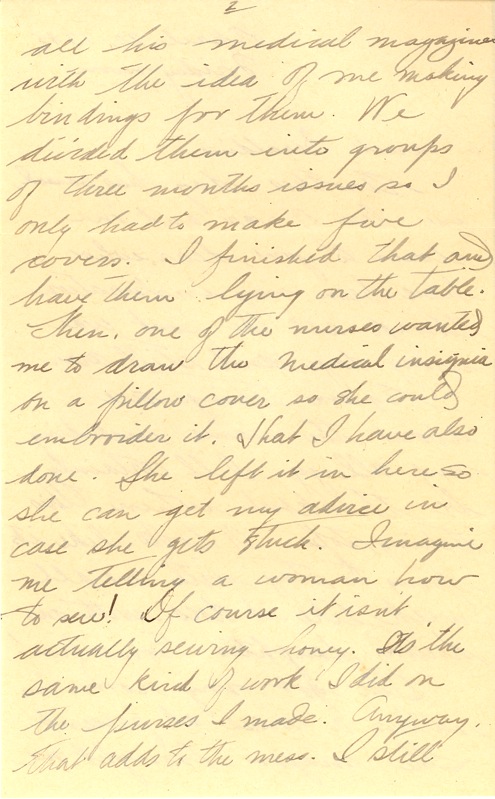 2
all his medical magazines
with the idea of me making
bindings for them. We
divided them into groups
of three months issues so I
only had to make five
covers. I finished that and
have them lying on the table.
Then, one of the nurses wanted
me to draw the medical insignia
on a pillow cover so she could
embroider it. That I have also
done. She left it in here so
she can get my advice in
case she gets stuck. Imagine
me telling a woman how
to sew! Of course it isn't
actually sewing honey. It's the
same kind of work I did on
the purses I made. Anyway,
that adds to the mess. I still